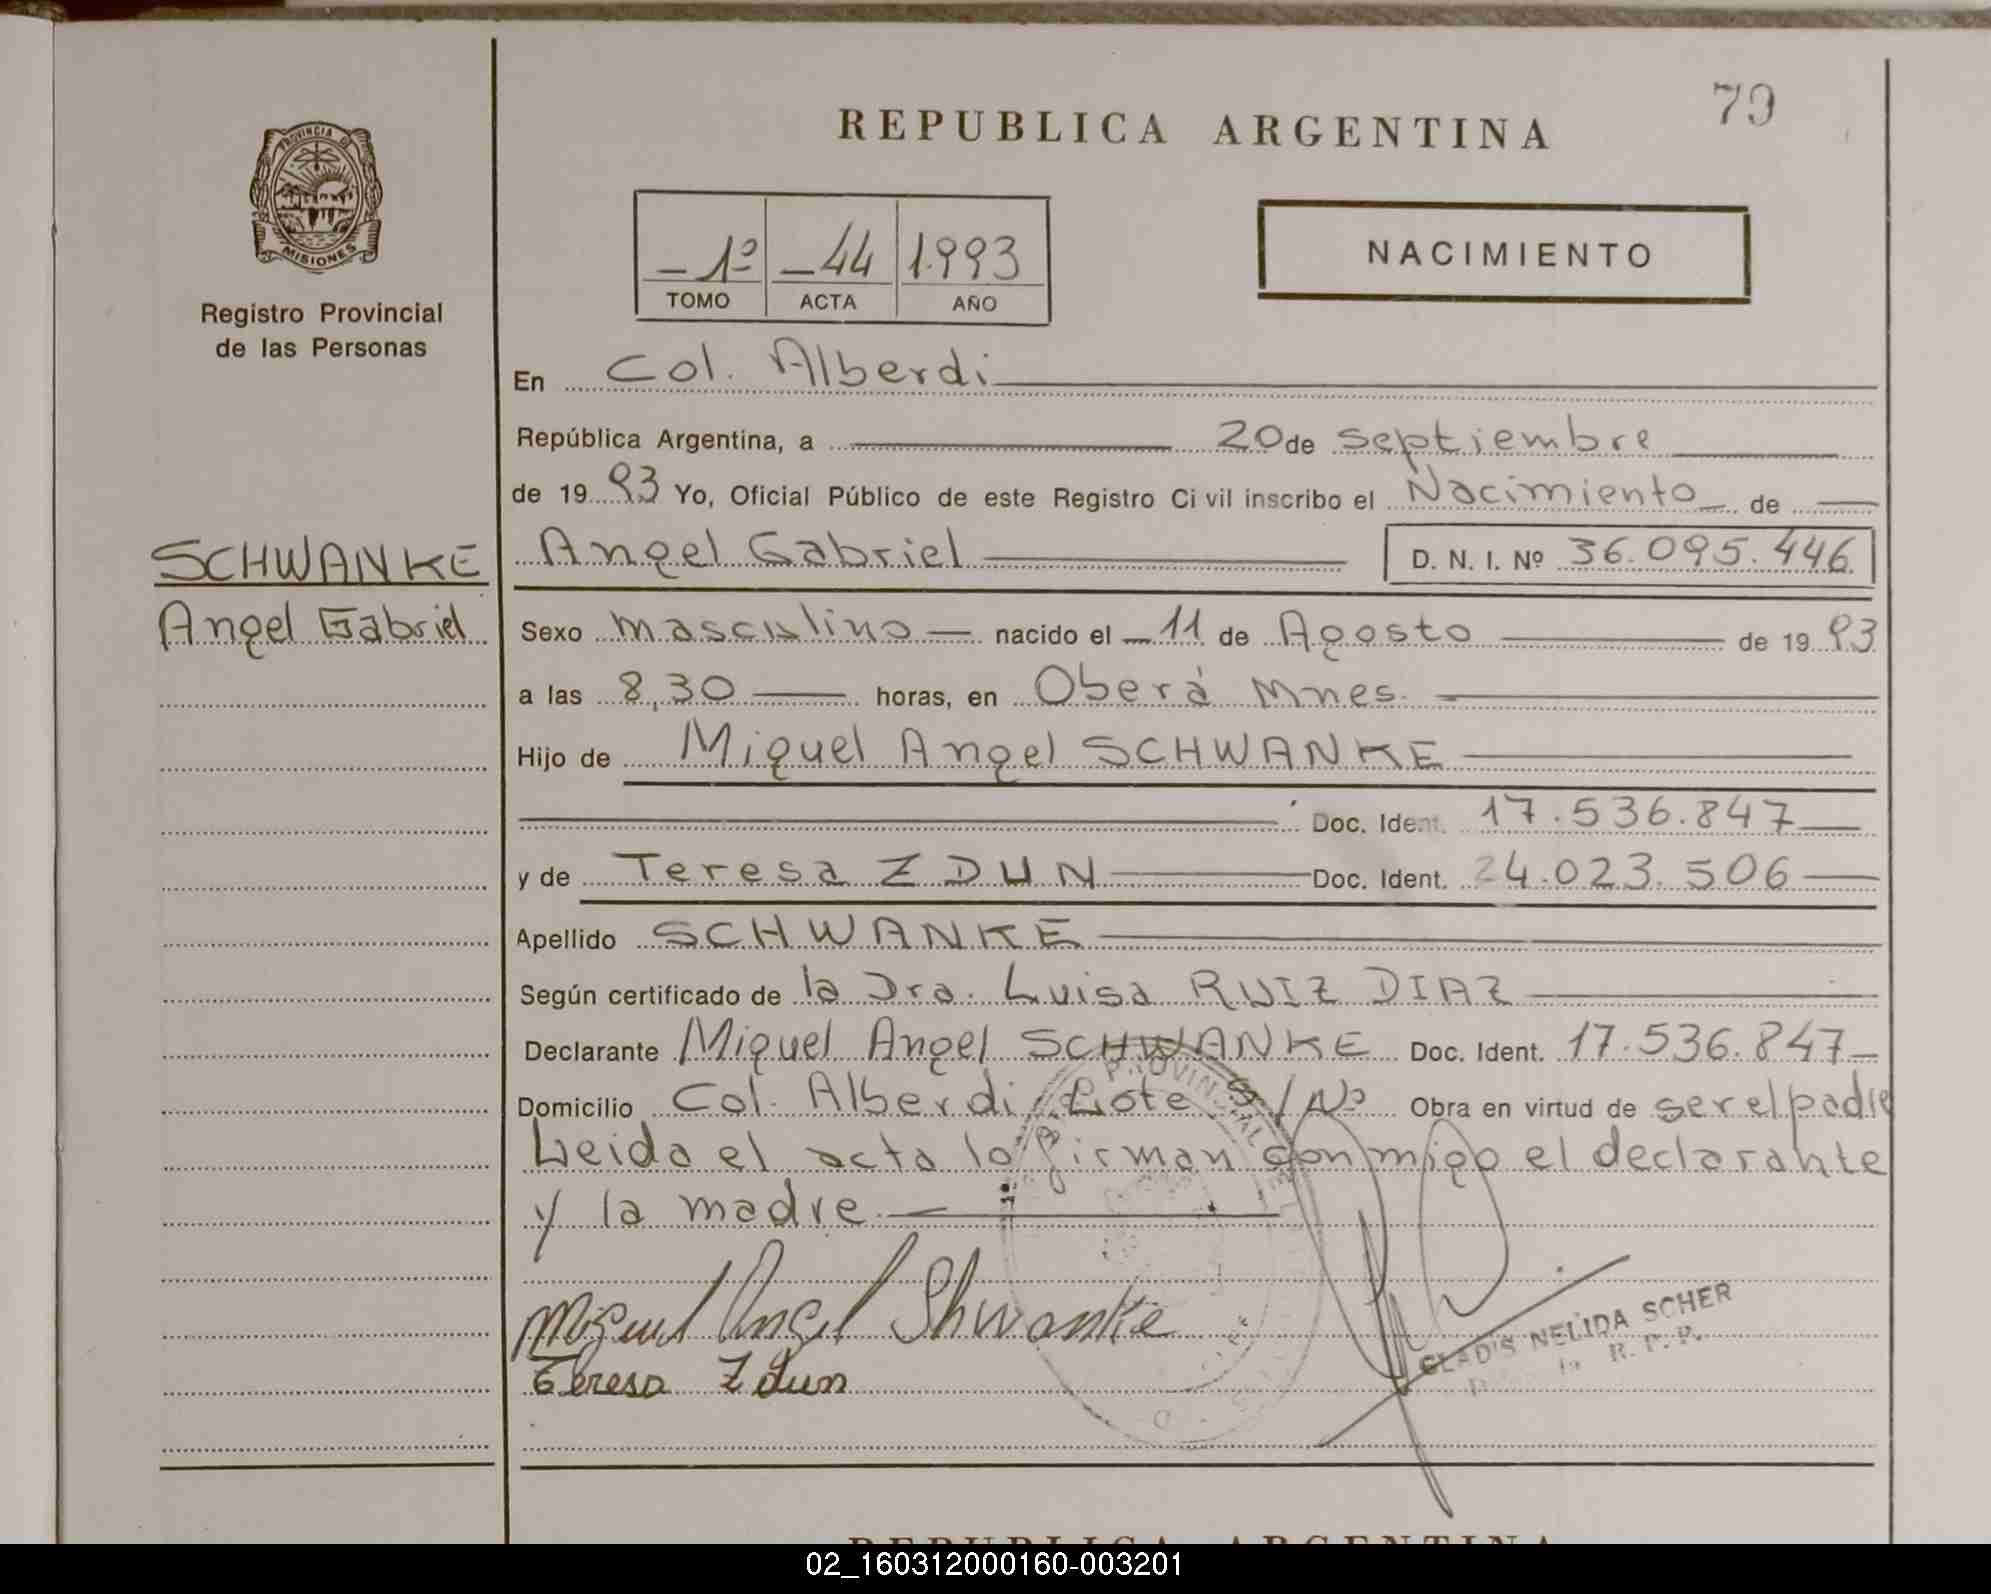 79
REPUBLICA ARGENTINA
PROVINCIA DE
MISIONES
Registro Provincial
de las Personas
1º 44 1.993
TOMO ACTA AÑO
NACIMIENTO
En Col. Alberdi
República Argentina, a 20 de septiembre
de 19 93 Yo, Oficial Público de este Registro Civil inscribo el Nacimiento de
SCHWANKE
Angel Gabriel
Angel Gabriel D. N. I. Nº 36.095.446
Sexo masculino nacido el 11 de Agosto de 19 93
a las 8,30 horas, en Oberá Mnes.
Hijo de Miguel Angel SCHWANKE
Doc. Ident. 17.536.847
y de Teresa ZDUN Doc. Ident. 24.023.506
Apellido SCHWANKE
Según certificado de la Dra. Luisa RUIZ DIAZ
Declarante Miguel Angel SCHWANKE Doc. Ident. 17.536.847
Domicilio Col. Alberdi, Lote S/Nº Obra en virtud de ser el padre
Leida el acta lo firman conmigo el declarante
y la madre
Miguel Angel Shwanke
Teresa Zdun
GLADIS NELIDA SCHER
R. P. P.
REPUBLICA ARGENTINA
02_160312000160-003201